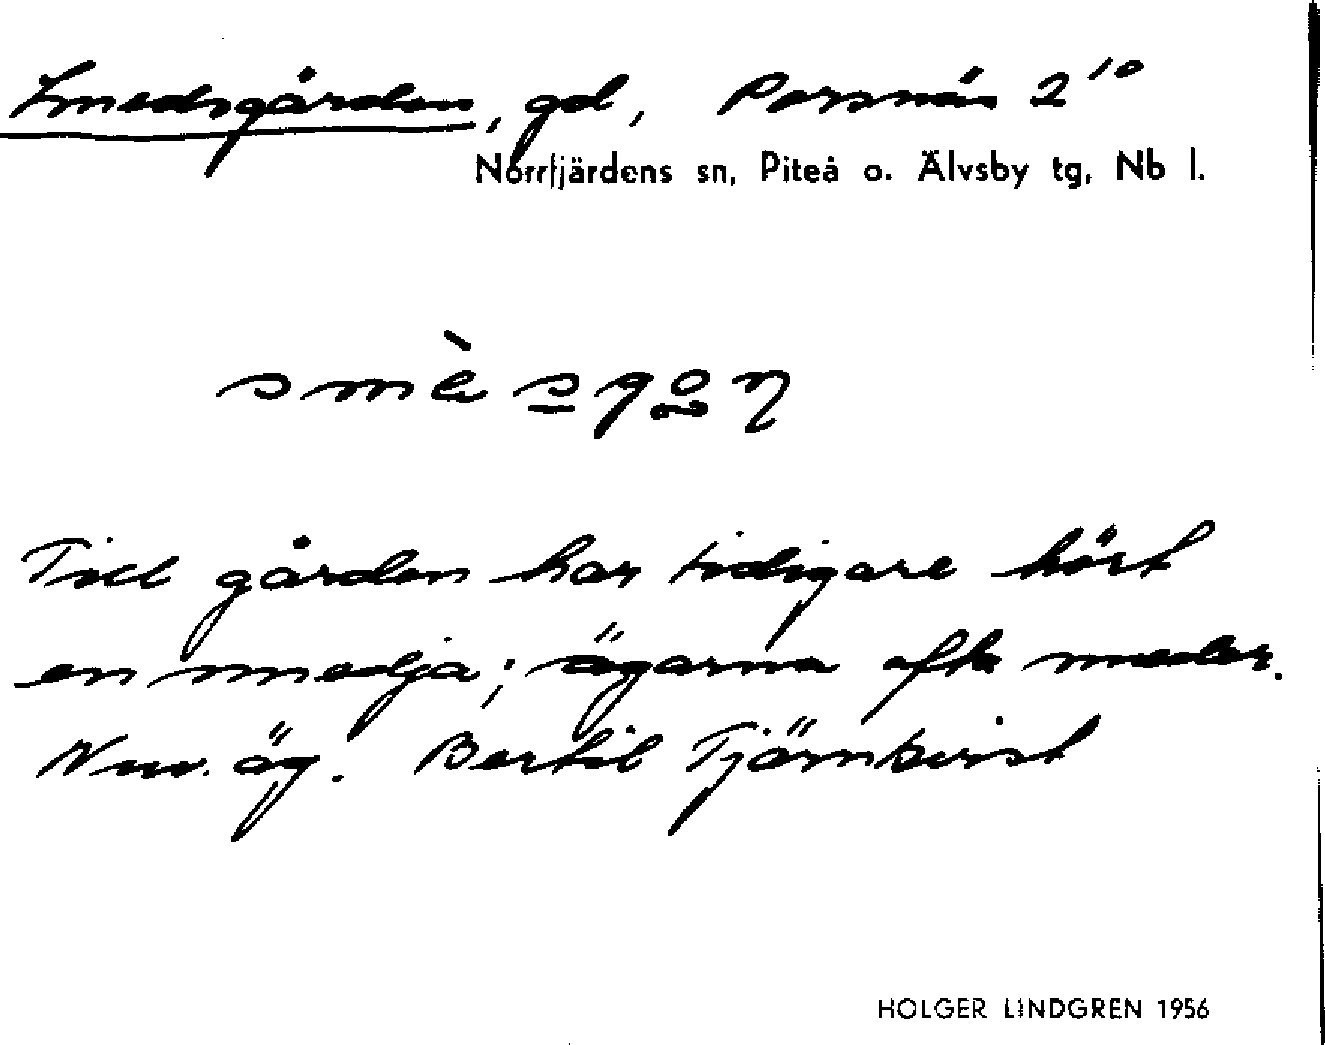 Smedsgården, gd, Porsnäs 2¹⁰
Norrfjärdens sn, Piteå o. Älvsby tg, Nb l.
Till gården har tidigare hört
en smedja; ägarna ofta smeder.
Nuv. äg. Bertil Tjärnkvist
HOLGER LINDGREN 1956